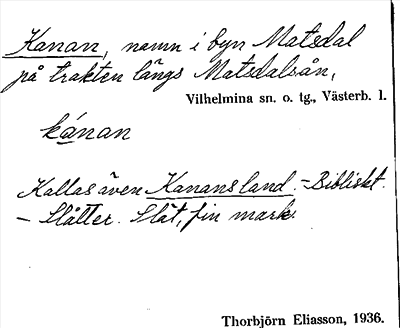 Kanan, namn i byn Matsdal
på trakten längs Matsdalsån,
Vilhelmina sn. o. tg., Västerb. l.
kánan
Kallas även Kanans land. - Bibliskt.
- Slåtter. Slät, fin mark.
Thorbjörn Eliasson, 1936.